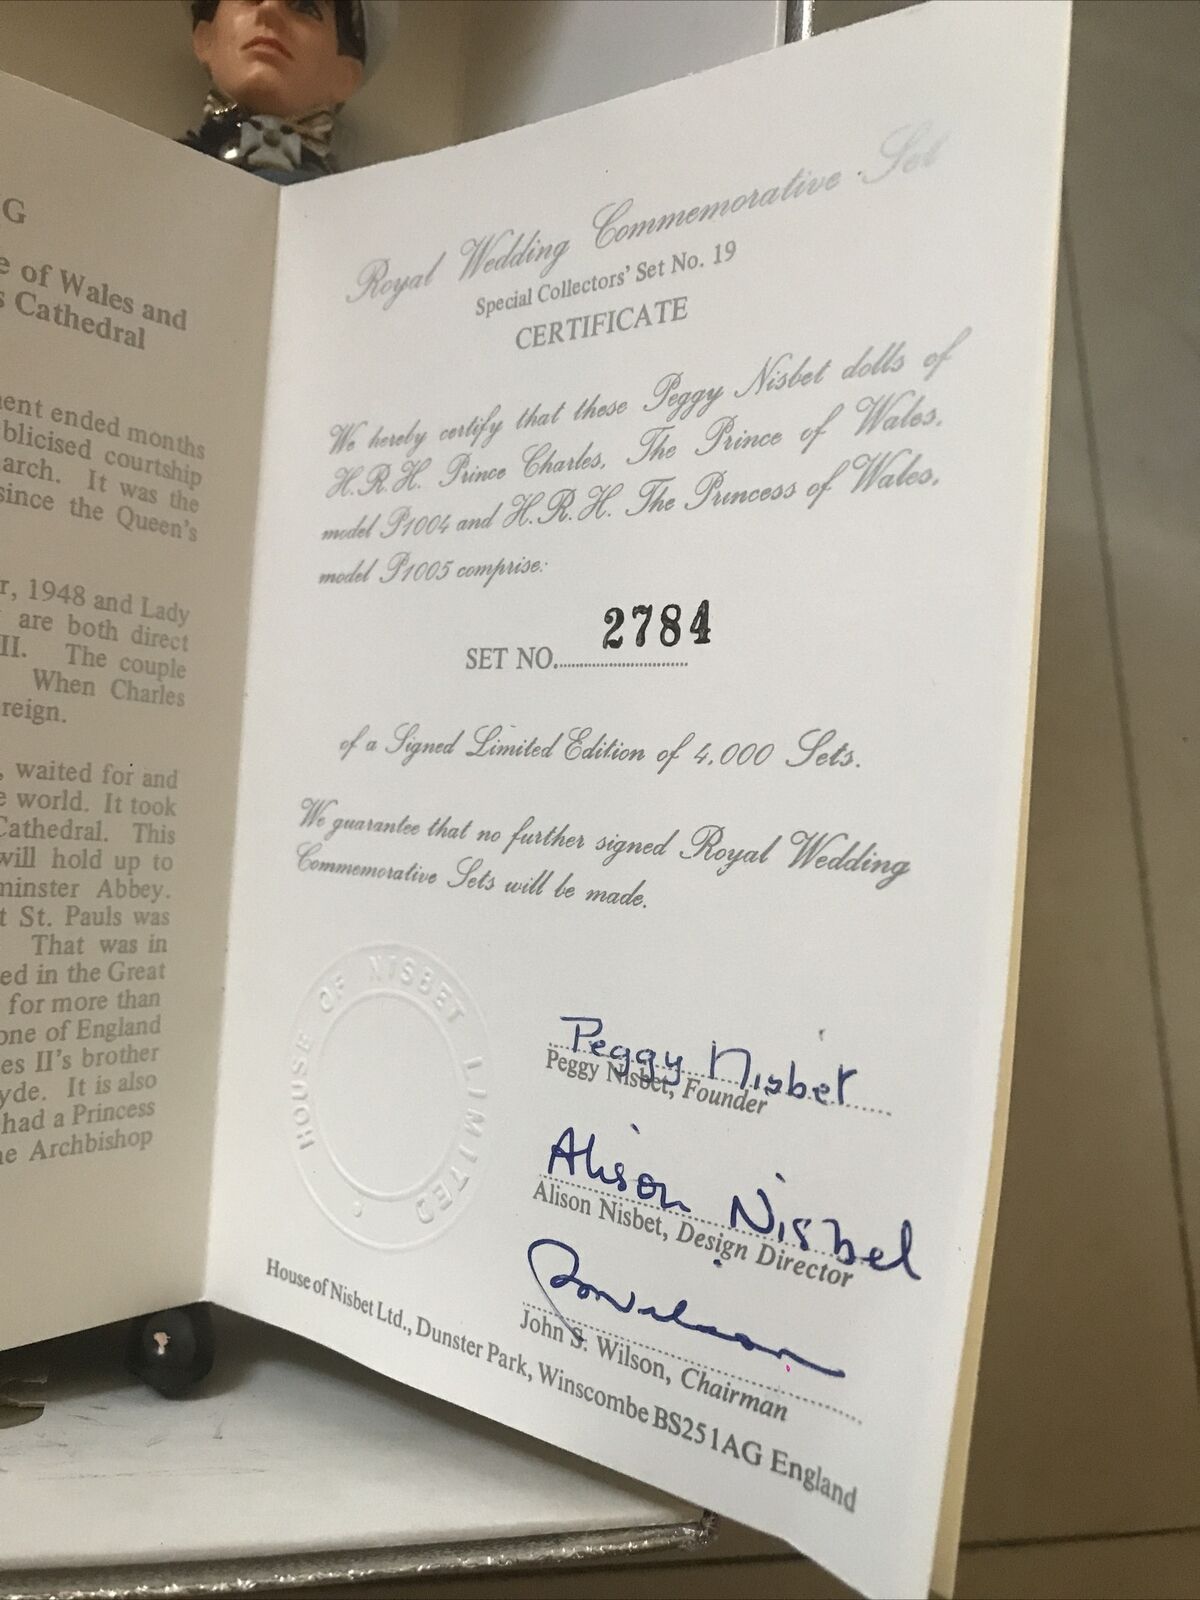 G
e of Wales and
s Cathedral
ent ended months
blicised courtship
arch. It was the
since the Queen's
r, 1948 and Lady
are both direct
II. The couple
When Charles
reign.
, waited for and
e world. It took
Cathedral. This
will hold up to
minster Abbey.
t St. Pauls was
That was in
ed in the Great
for more than
one of England
es II's brother
yde. It is also
had a Princess
e Archbishop
Royal Wedding Commemorative Set
Special Collectors' Set No. 19
CERTIFICATE
We hereby certify that these Peggy Nisbet dolls of
H.R.H. Prince Charles, The Prince of Wales,
model P1004 and H.R.H. The Princess of Wales,
model P1005 comprise:
SET NO. 2784
of a Signed Limited Edition of 4,000 Sets.
We guarantee that no further signed Royal Wedding
Commemorative Sets will be made.
HOUSE OF NISBET LIMITED
Peggy Nisbet
Peggy Nisbet, Founder
Alison Nisbet
Alison Nisbet, Design Director
John S. Wilson, Chairman
House of Nisbet Ltd., Dunster Park, Winscombe BS251AG England